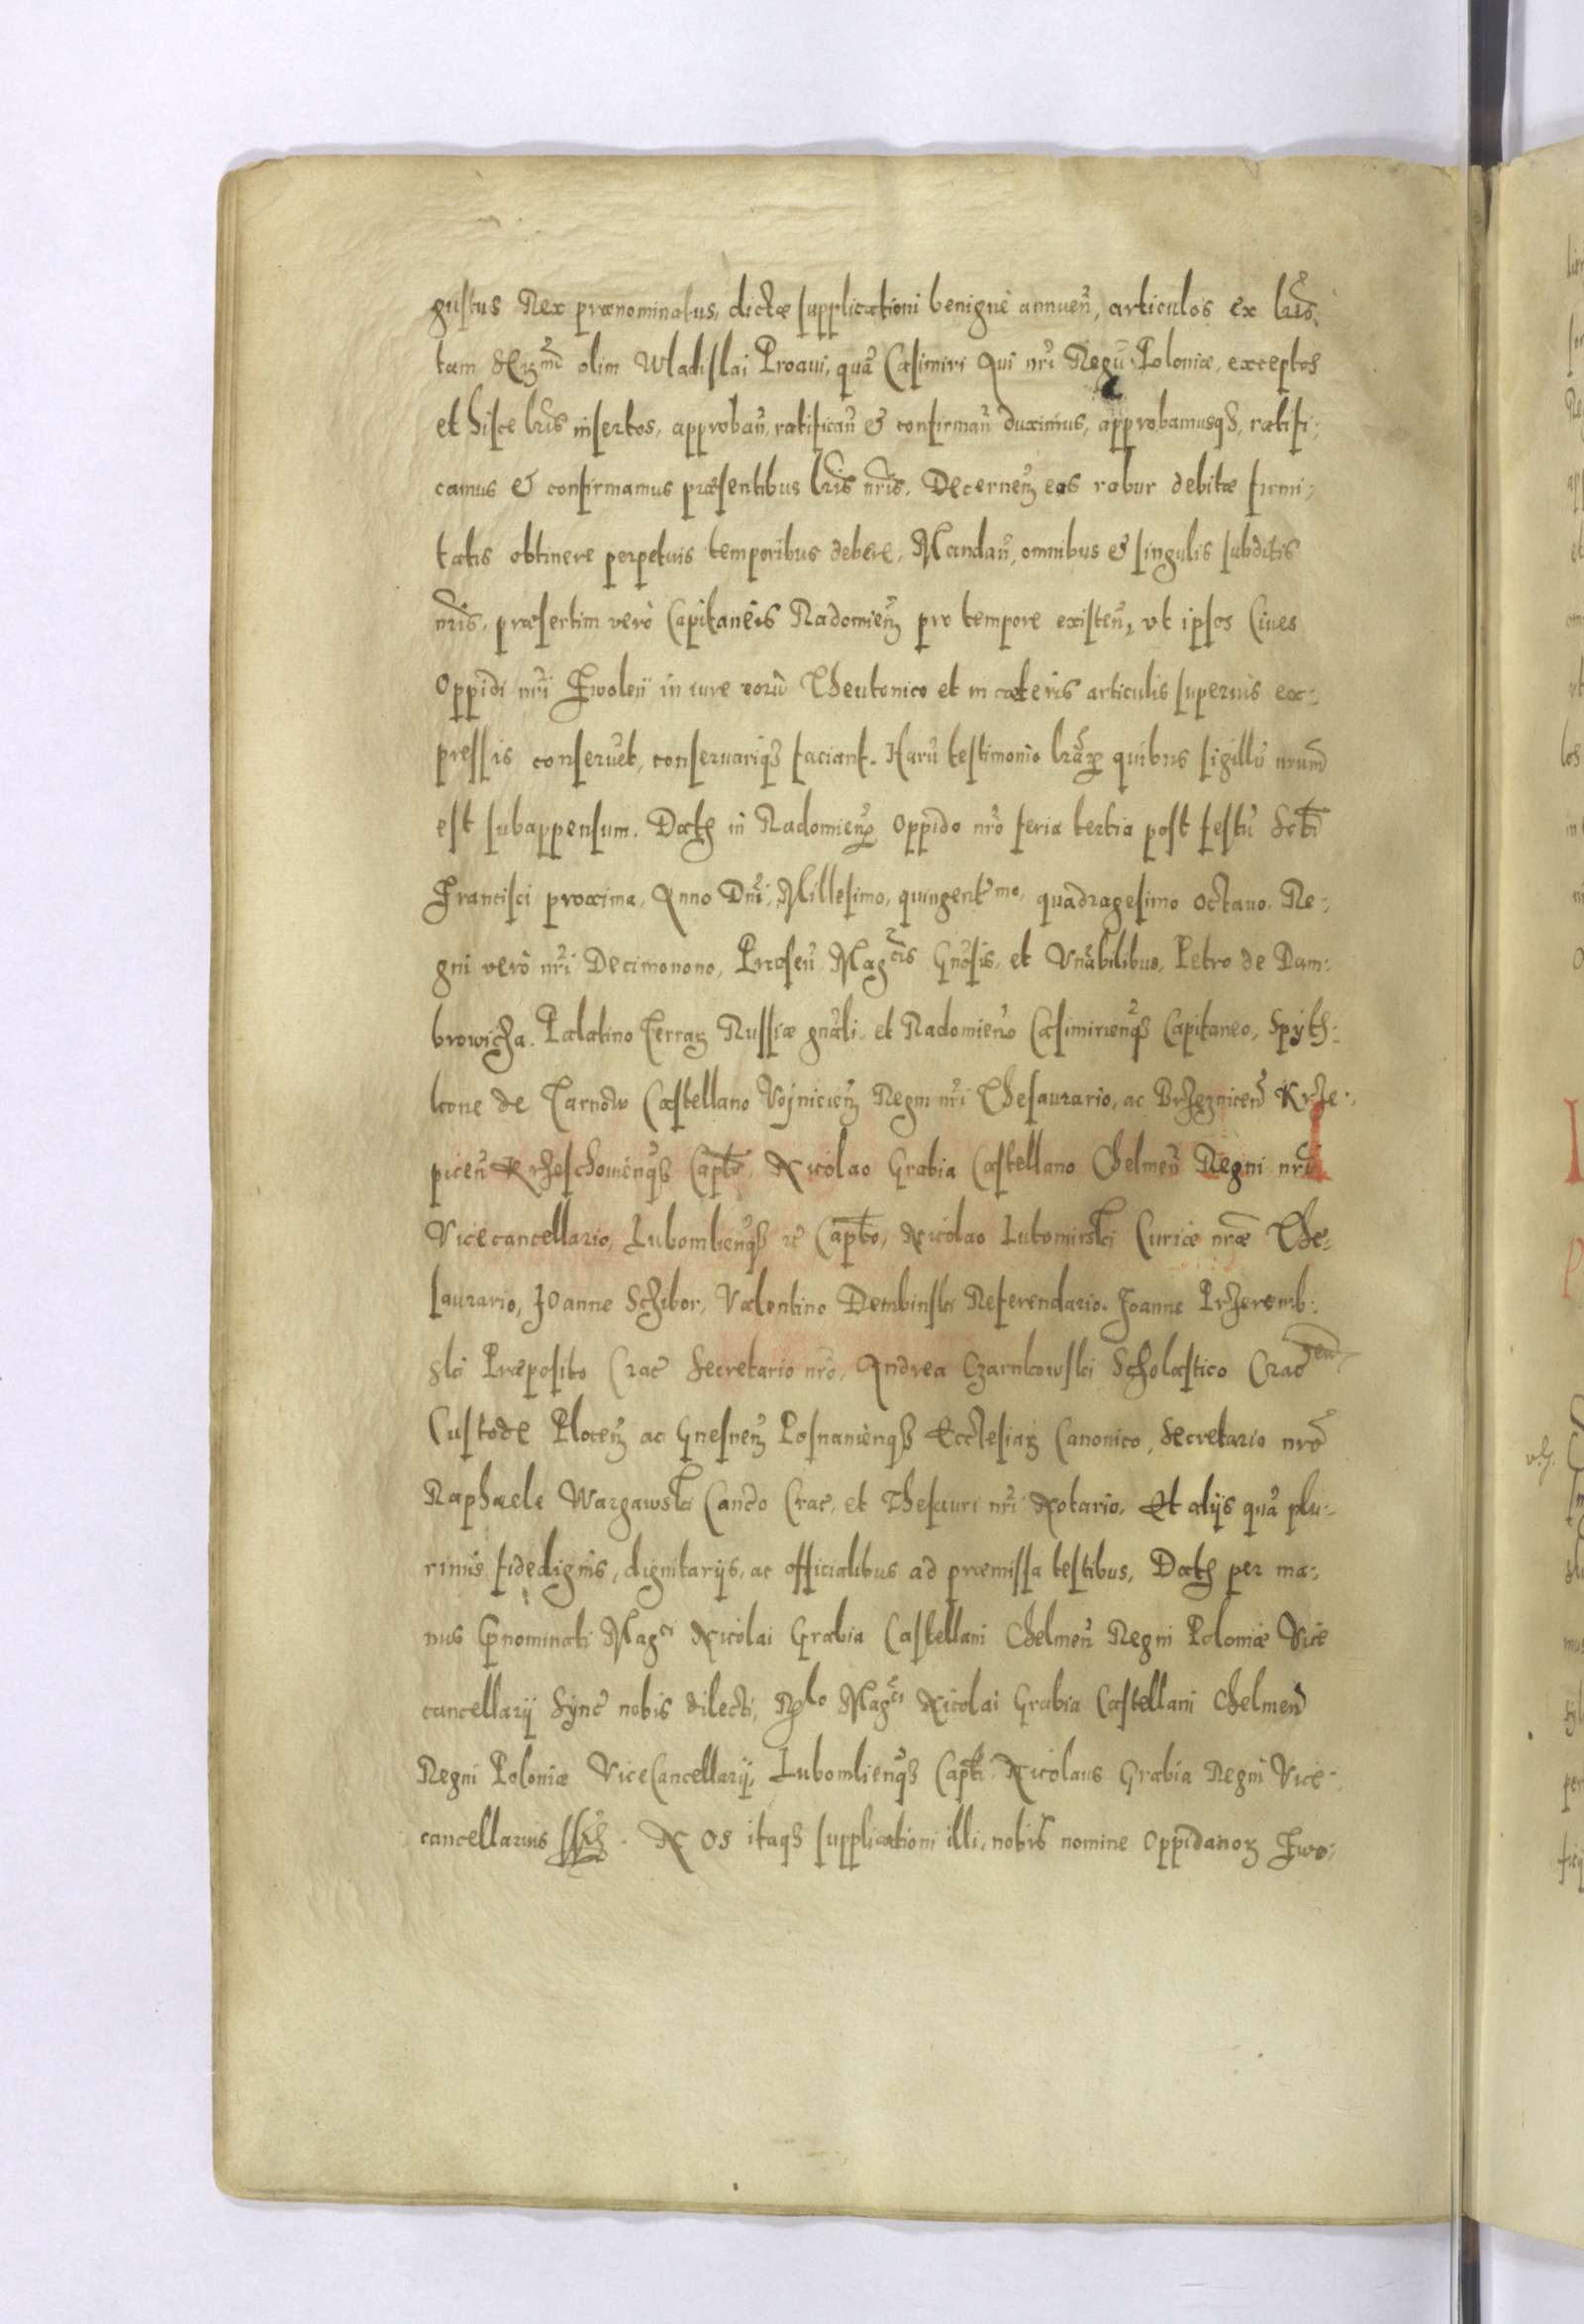 gustus Rex prænominatus, dictæ supplicationi benignè annueñ, articulos ex lr̃is
tam olim Wladislai Proaui, quã Casimiri Aui nr̃i Regũ Poloniæ, exceptos
et hisce lr̃is insertos, approbañ, ratificañ & confirmañ duximus, approbamusqʒ, ratifi:
camus & confirmamus præsentibus lr̃is nr̃is. Decerneñ eas robur debitæ firmi:
tatis obtinere perpetuis temporibus debere, Mandañ, omnibus & singulis subditis
nr̃is, præsertim verò Capitaneis Radomieñ pro tempore existeñ, vt ipsos Ciues
Oppidi nr̃i Zwoleñ in iure eorũ Theutonico et in cæteris articulis superius ex:
pressis conseruẽt, conseruariqʒ faciant. Harũ testimonio lr̃aꝝ quibus sigillũ nrum̃
est subappensum. Datꝫ in Radomieñ Oppido nr̃o feria tertia post festũ Scti
Francisci proxima, Anno Dñi, Millesimo, quingent.mo, quadragesimo Octauo. Re:
gni verò nr̃i Decimonono, Præseñ Mag.cis Gñosis, et Vnãbilibus, Petro de Dam:
browicza. Palatino Terraꝝ Russiæ gñali, et Radomieño Casimirieñqʒ Capitaneo, Spyth:
kone de Tarnow Castellano Voiniceñ Regni nr̃i Thesaurario, ac Brzezniceñ Krze:
piceñ Krzeschowieñqʒ Capto, Nicolao Grabia Castellano Chelmeñ Regni nr̃i
Vicecancellario, Lubomlieñqʒ &c Capto, Nicolao Lutomirski Curiæ nr̃æ The:
saurario, JOanne Schibor, Valentino Dembinski Referendario. Joanne Przeremb:
ski Præposito Crac̃ Secretario nr̃o, Andrea Czarnkowski Scholastico Crac̃.eñ
Custode Ploceñ ac Gnesneñ Posnanieñqʒ Ecclesiaꝝ Canonico, Secretario nr̃o
Raphaele Wargawski Canco Crac̃, et Thesauri nr̃i Notario. Et alijs quã plu:
rimis fidedignis, dignitarijs, ac officialibus ad præmissa testibus, Datꝫ per ma:
nus p̃nominati Mag.ci Nicolai Grabia Castellani Chelmeñ Regni Poloniæ Vice
cancellarij Sync̃ nobis dilecti, Rlo Mag.ci Nicolai Grabia Castellani Chelmeñ
Regni Poloniæ ViceCancellarij, Lubomlieñqʒ Capti. Nicolaus Grabia Regni Vice:
cancellarius sst. NOS itaqʒ supplicationi illi, nobis nomine Oppidanoꝝ Zwo: